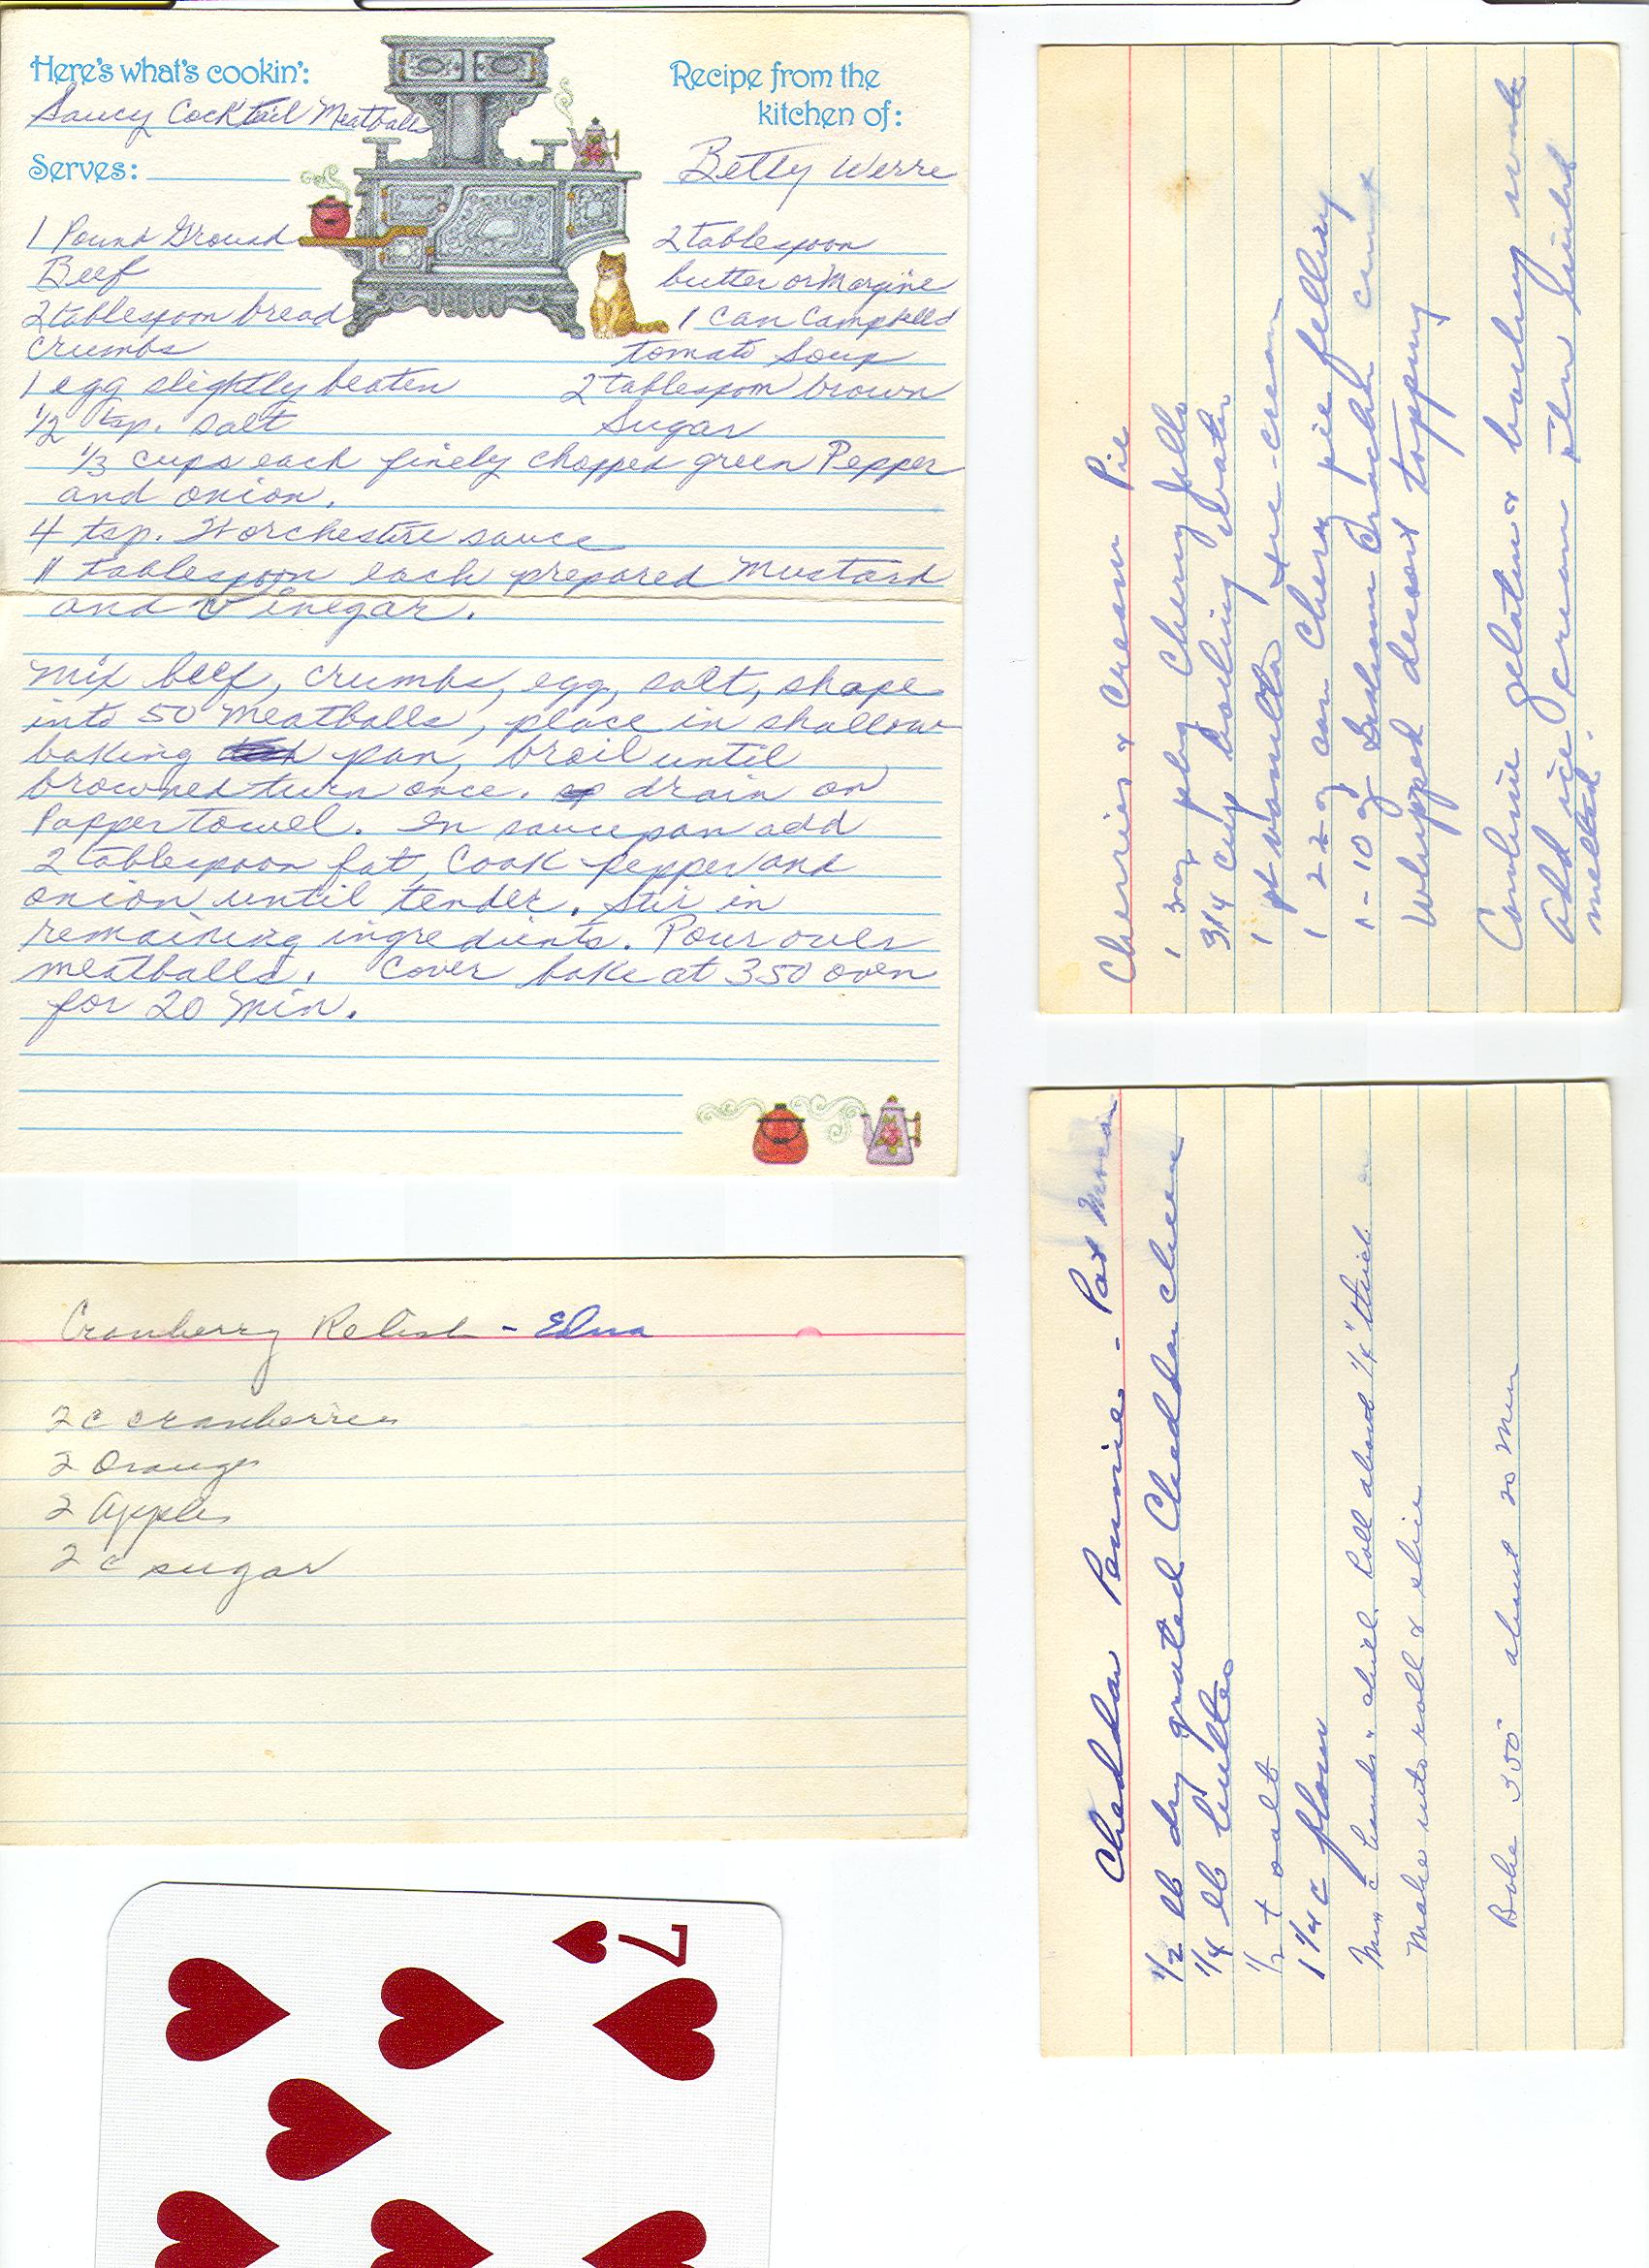 Here's what's cookin':
Saucy Cocktail Meatballs
Serves:
Recipe from the
kitchen of:
Betty Werre
1 Pound Ground
Beef
2 tablespoon bread
crumbs
1 egg slightly beaten
1/2 tsp. salt
2 tablespoon
butter or Margine
1 can Campbells
tomato Soup
2 tablespoon brown
Sugar
1/3 cups each finely chopped green Pepper
and onion.
4 tsp. Worchestire sauce
1 tablespoon each prepared Mustard
and Vinegar.
Mix beef, crumbs, egg, salt, shape
into 50 Meatballs, place in shallow
baking pan, broil until
browned turn once. drain on
Papper towel. In saucepan add
2 tablespoon fat, Cook pepper and
onion until tender. Stir in
remaining ingredients. Pour over
meatballs. Cover bake at 350 oven
for 20 Min.
Cherries & Cream Pie
1 3 oz pkg Cherry Jello
3/4 cup boiling Water
1 pt vanilla ice-cream
1 22 oz can Cherry pie filling
1-10 oz Graham Cracker crust
Whipped desert topping
Combine gelatin & boiling water
Add ice cream
melted.
Cranberry Relish - Edna
2 c cranberries
2 Oranges
2 Apples
2 c sugar
Cheddar Pennies - Pat
1/2 lb dry grated Cheddar cheese
1/4 lb butter
1/2 t salt
1 1/4 c flour
Mix c hands & chill Roll about 1/4" thick
Make into roll & slice
Bake 350° about 20 Min
7